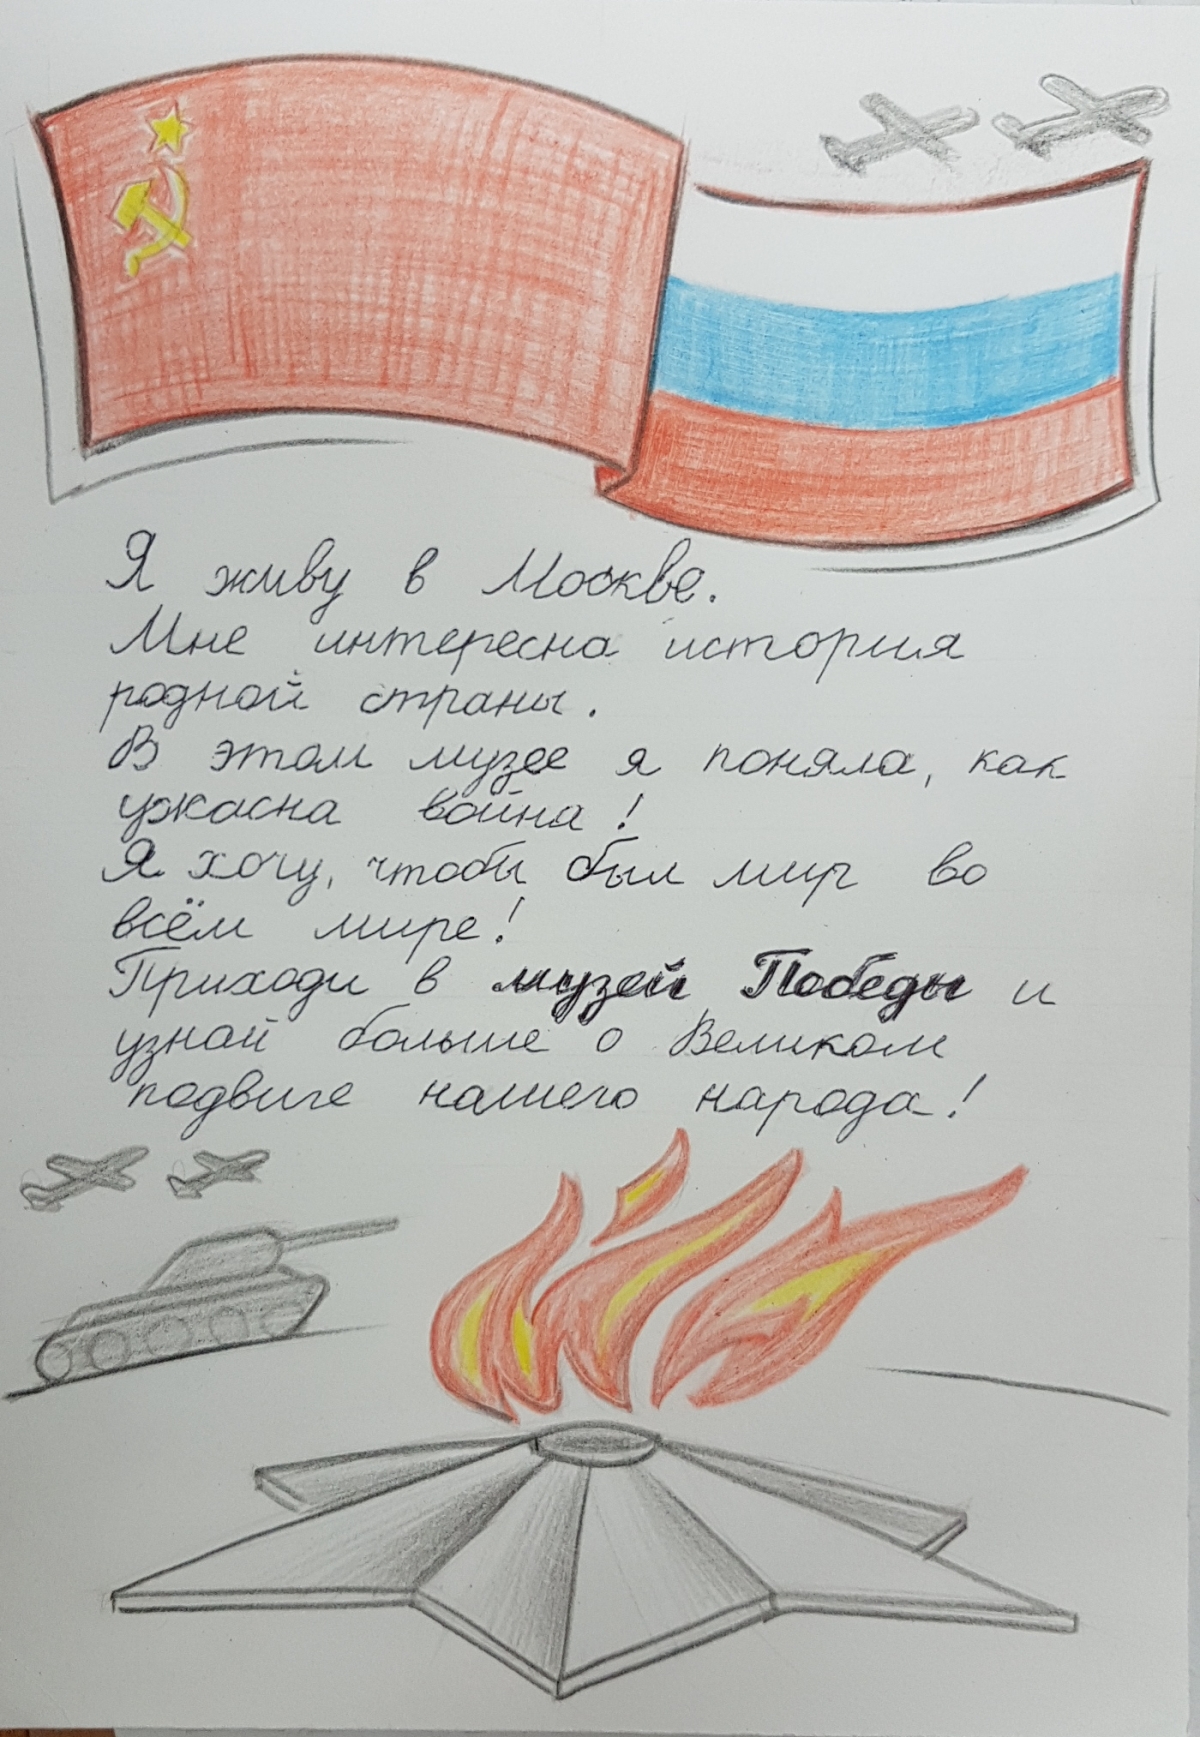 Я живу в Москве.
Мне интересна история
родной страны.
В этом музее я поняла, как
ужасна война!
Я хочу, чтобы был мир во
всём мире!
Приходи в музей Победы и
узнай больше о Великом
подвиге нашего народа!